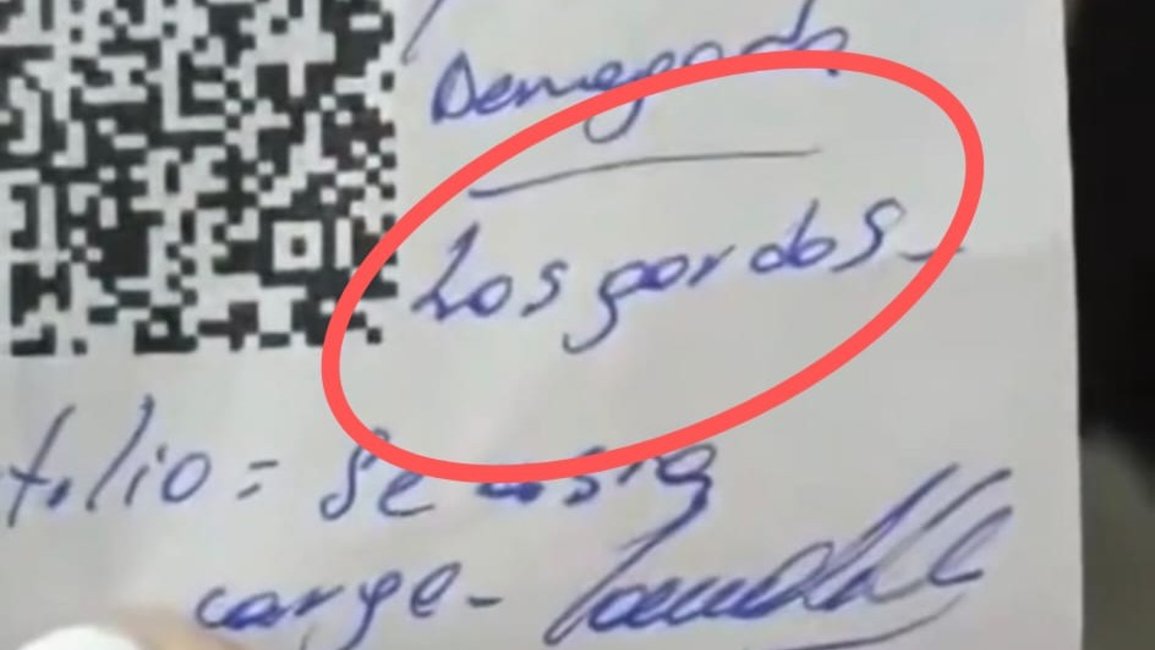 Demegado
Los gordos-
folio = Se
carge-